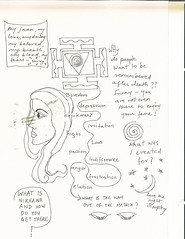 my jaan, my
love, my darling
my beloved
my breath,
my blood, my
Why
do people
want to be
remembered
after death??
Funny - you
are not even
there to enjoy
your fame!
Boredom
depression
excitement
irritation
Love
passion
indifference
anger
frustration
elation
what was I
created
for?
WHAT IS
NIRVANA
AND HOW
DO YOU
GET THERE
WHAT IS THE WAY
OUT OF THE MATRIX?